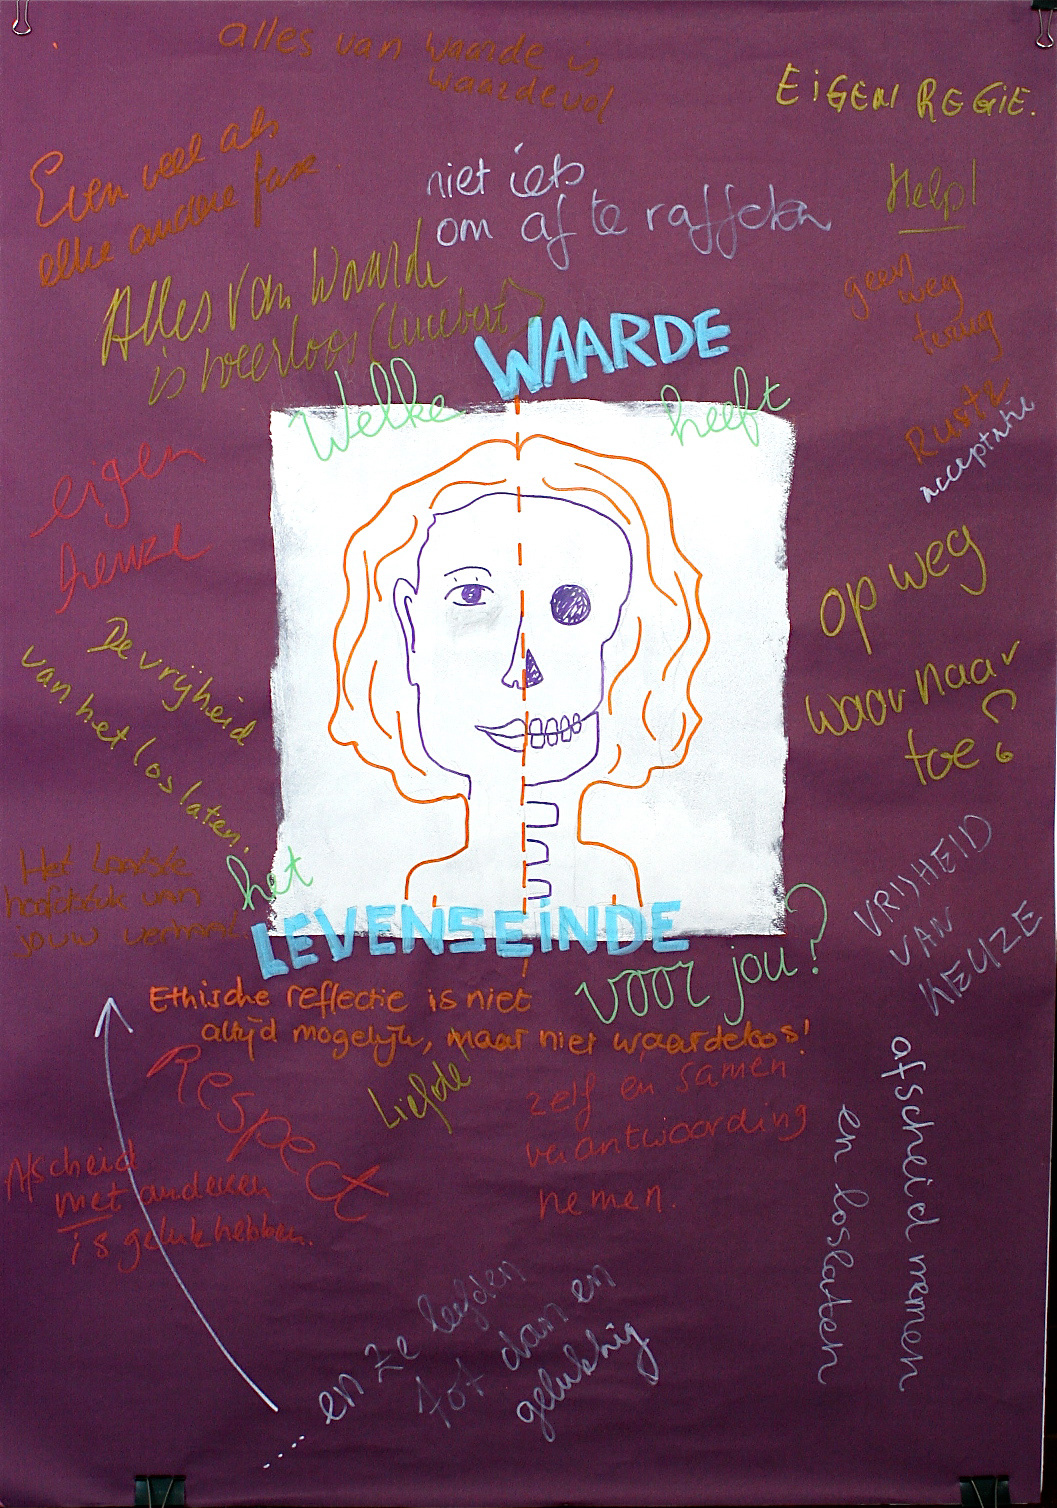 alles van waarde is
waardevol
EIGEN REGIE.
Even veel als
elke andere fase.
niet iets
om af te raffelen
Help!
Alles van Waarde
is weerloos (Lucebert)
geen
weg
tering
WAARDE
Welke heeft
Rust
acceptatie
eigen
keuze
op weg
waar naar
toe?
De vrijheid
van het loslaten.
Het laatste
hoofdstuk van
jouw verhaal
het
LEVENSEINDE
voor jou?
VRIJHEID
VAN
KEUZE
Ethische reflectie is niet
altijd mogelijk, maar niet waardeloos!
Respect
Liefde
zelf en samen
verantwoording
nemen.
afscheid nemen
en loslaten
Afscheid
met anderen
is geluk hebben.
en ze leefden
tot dan en
gelukkig
....